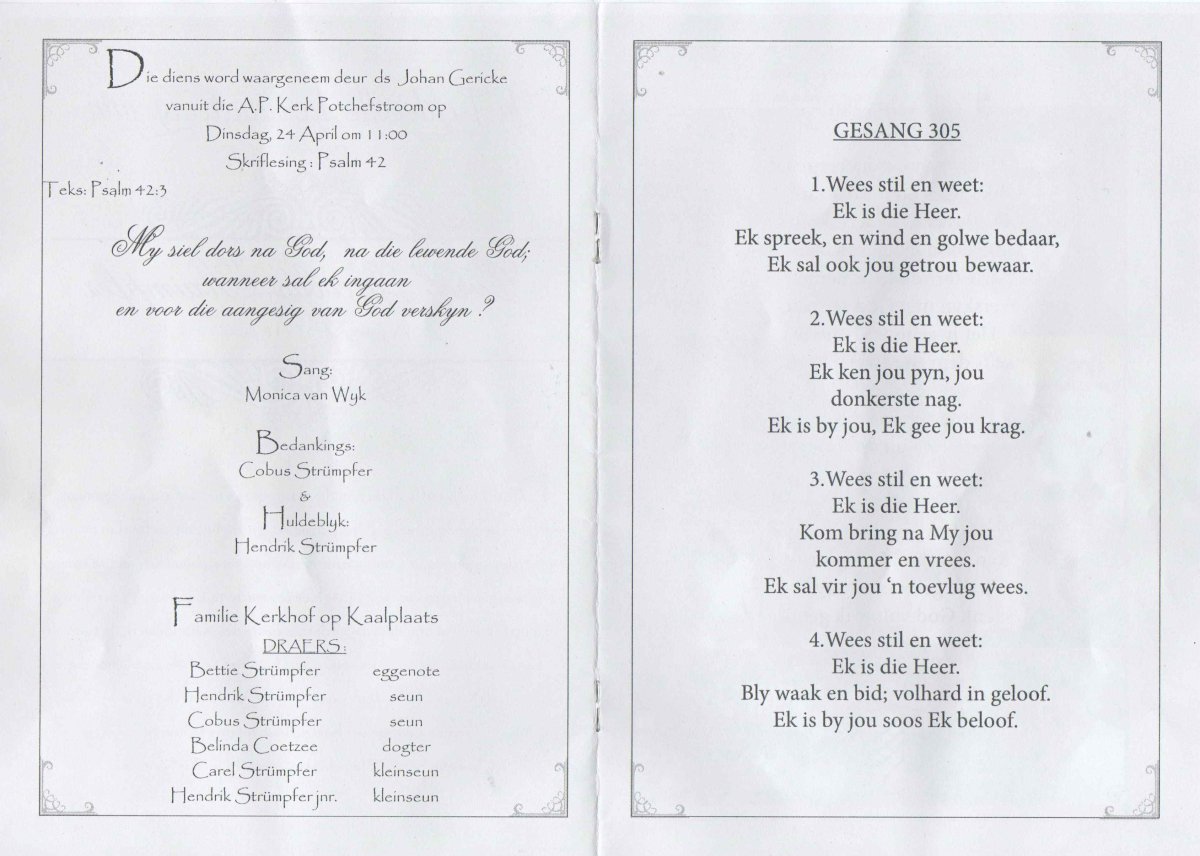 Die diens word waargeneem deur ds Johan Gericke
vanuit die A.P. Kerk Potchefstroom op
Dinsdag, 24 April om 11:00
Skriflesing : Psalm 42
Teks: Psalm 42:3
My siel dors na God, na die lewende God;
wanneer sal ek ingaan
en voor die aangesig van God verskyn ?
Sang:
Monica van Wyk
Bedankings:
Cobus Strümpfer
&
Huldeblyk:
Hendrik Strümpfer
Familie Kerkhof op Kaalplaats
DRAERS :
Bettie Strümpfer eggenote
Hendrik Strümpfer seun
Cobus Strümpfer seun
Belinda Coetzee dogter
Carel Strümpfer kleinseun
Hendrik Strümpfer jnr. kleinseun
GESANG 305
1.Wees stil en weet:
Ek is die Heer.
Ek spreek, en wind en golwe bedaar,
Ek sal ook jou getrou bewaar.
2.Wees stil en weet:
Ek is die Heer.
Ek ken jou pyn, jou
donkerste nag.
Ek is by jou, Ek gee jou krag.
3.Wees stil en weet:
Ek is die Heer.
Kom bring na My jou
kommer en vrees.
Ek sal vir jou ‘n toevlug wees.
4.Wees stil en weet:
Ek is die Heer.
Bly waak en bid; volhard in geloof.
Ek is by jou soos Ek beloof.